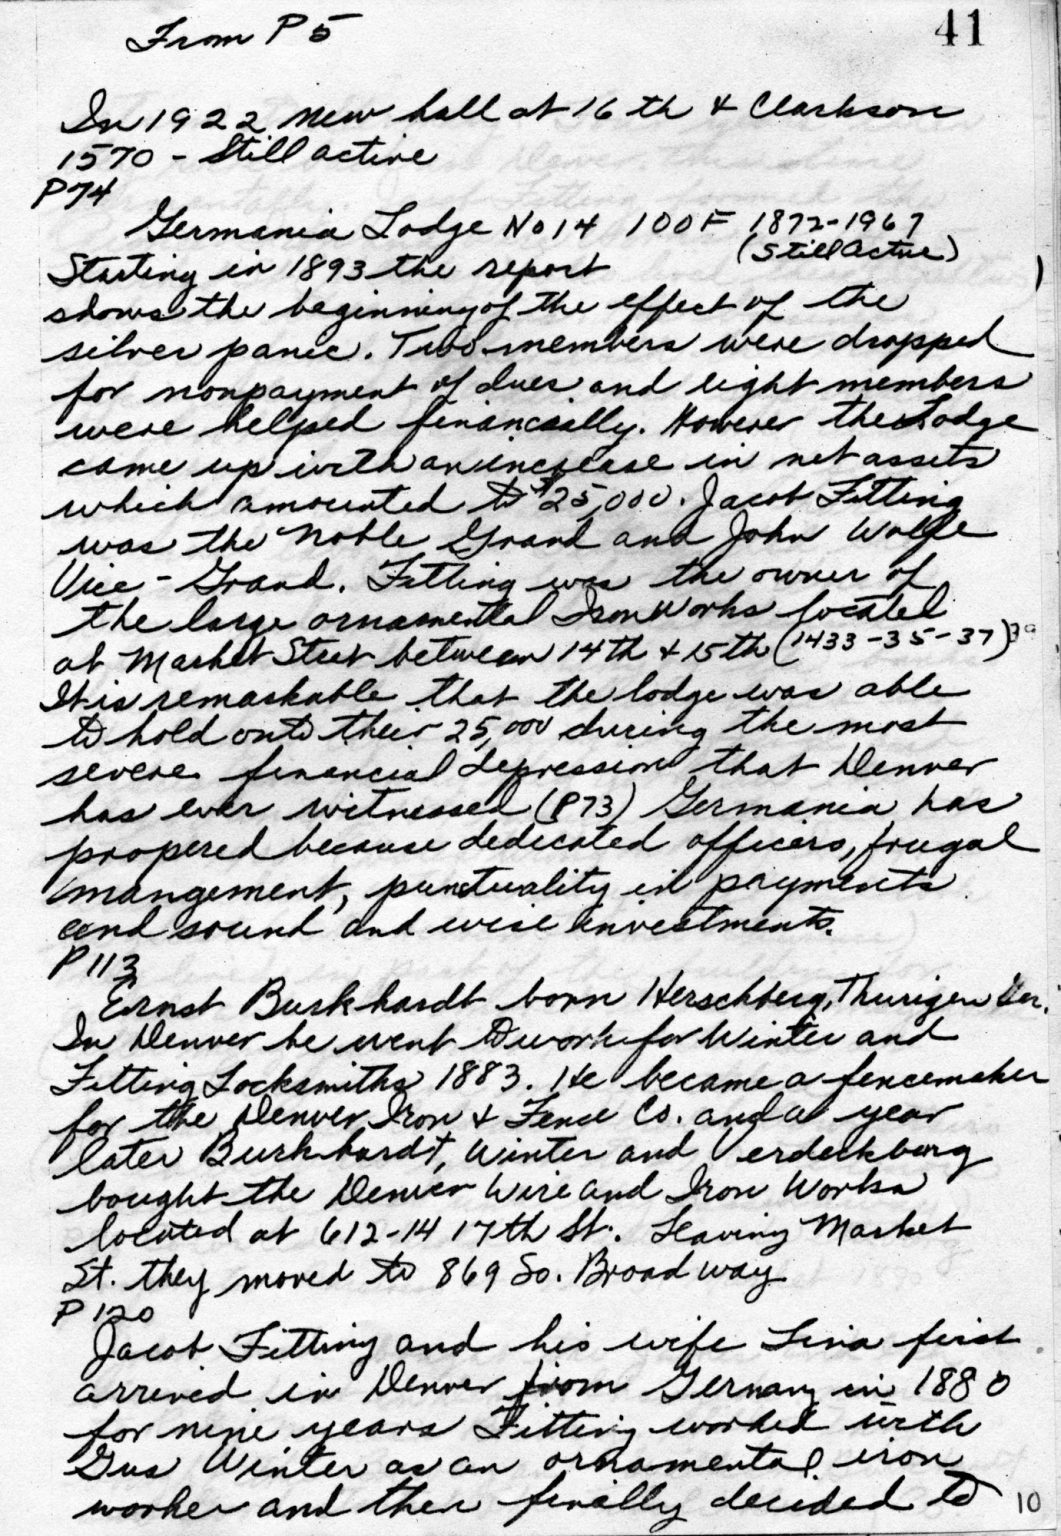 From P 5
41
In 1922 new hall at 16 th & Clarkson
1570 - Still active
P74
Germania Lodge No 14 IOOF 1872-1967
(Still Active)
Starting in 1893 the report
shows the beginning of the effect of the
silver panic. Two members were dropped
for nonpayment of dues and eight members
were helped financially. However the Lodge
came up with an increase in net assets
which amounted to $25,000. Jacob Fitting
was the Noble Grand and John Wolfe
Vice-Grand. Fitting was the owner of
the large ornamental Iron Works located
at Market Street between 14th & 15th (1433-35-37) 39
It is remarkable that the lodge was able
to hold onto their 25,000 during the most
severe financial depression that Denver
has ever witnessed (P73) Germania has
propered because dedicated officers, frugal
mangement, punctuality in payments
and sound and wise investments.
P 113
Ernst Burkhardt born Herschberg, Thurigen Ger.
In Denver he went to work for Winter and
Fitting Locksmiths 1883. He became a fencemaker
for the Denver Iron & Fence Co. and a year
later Burkhardt, Winter and Verdeckburg
bought the Denver Wire and Iron Works
located at 612-14 17th St. Leaving Market
St. they moved to 869 So. Broadway
P 120
Jacob Fitting and his wife Lina first
arrived in Denver from Germany in 1880
for nine years Fitting worked with
Gus Winter as an ornamental iron
worker and then finally decided to
10